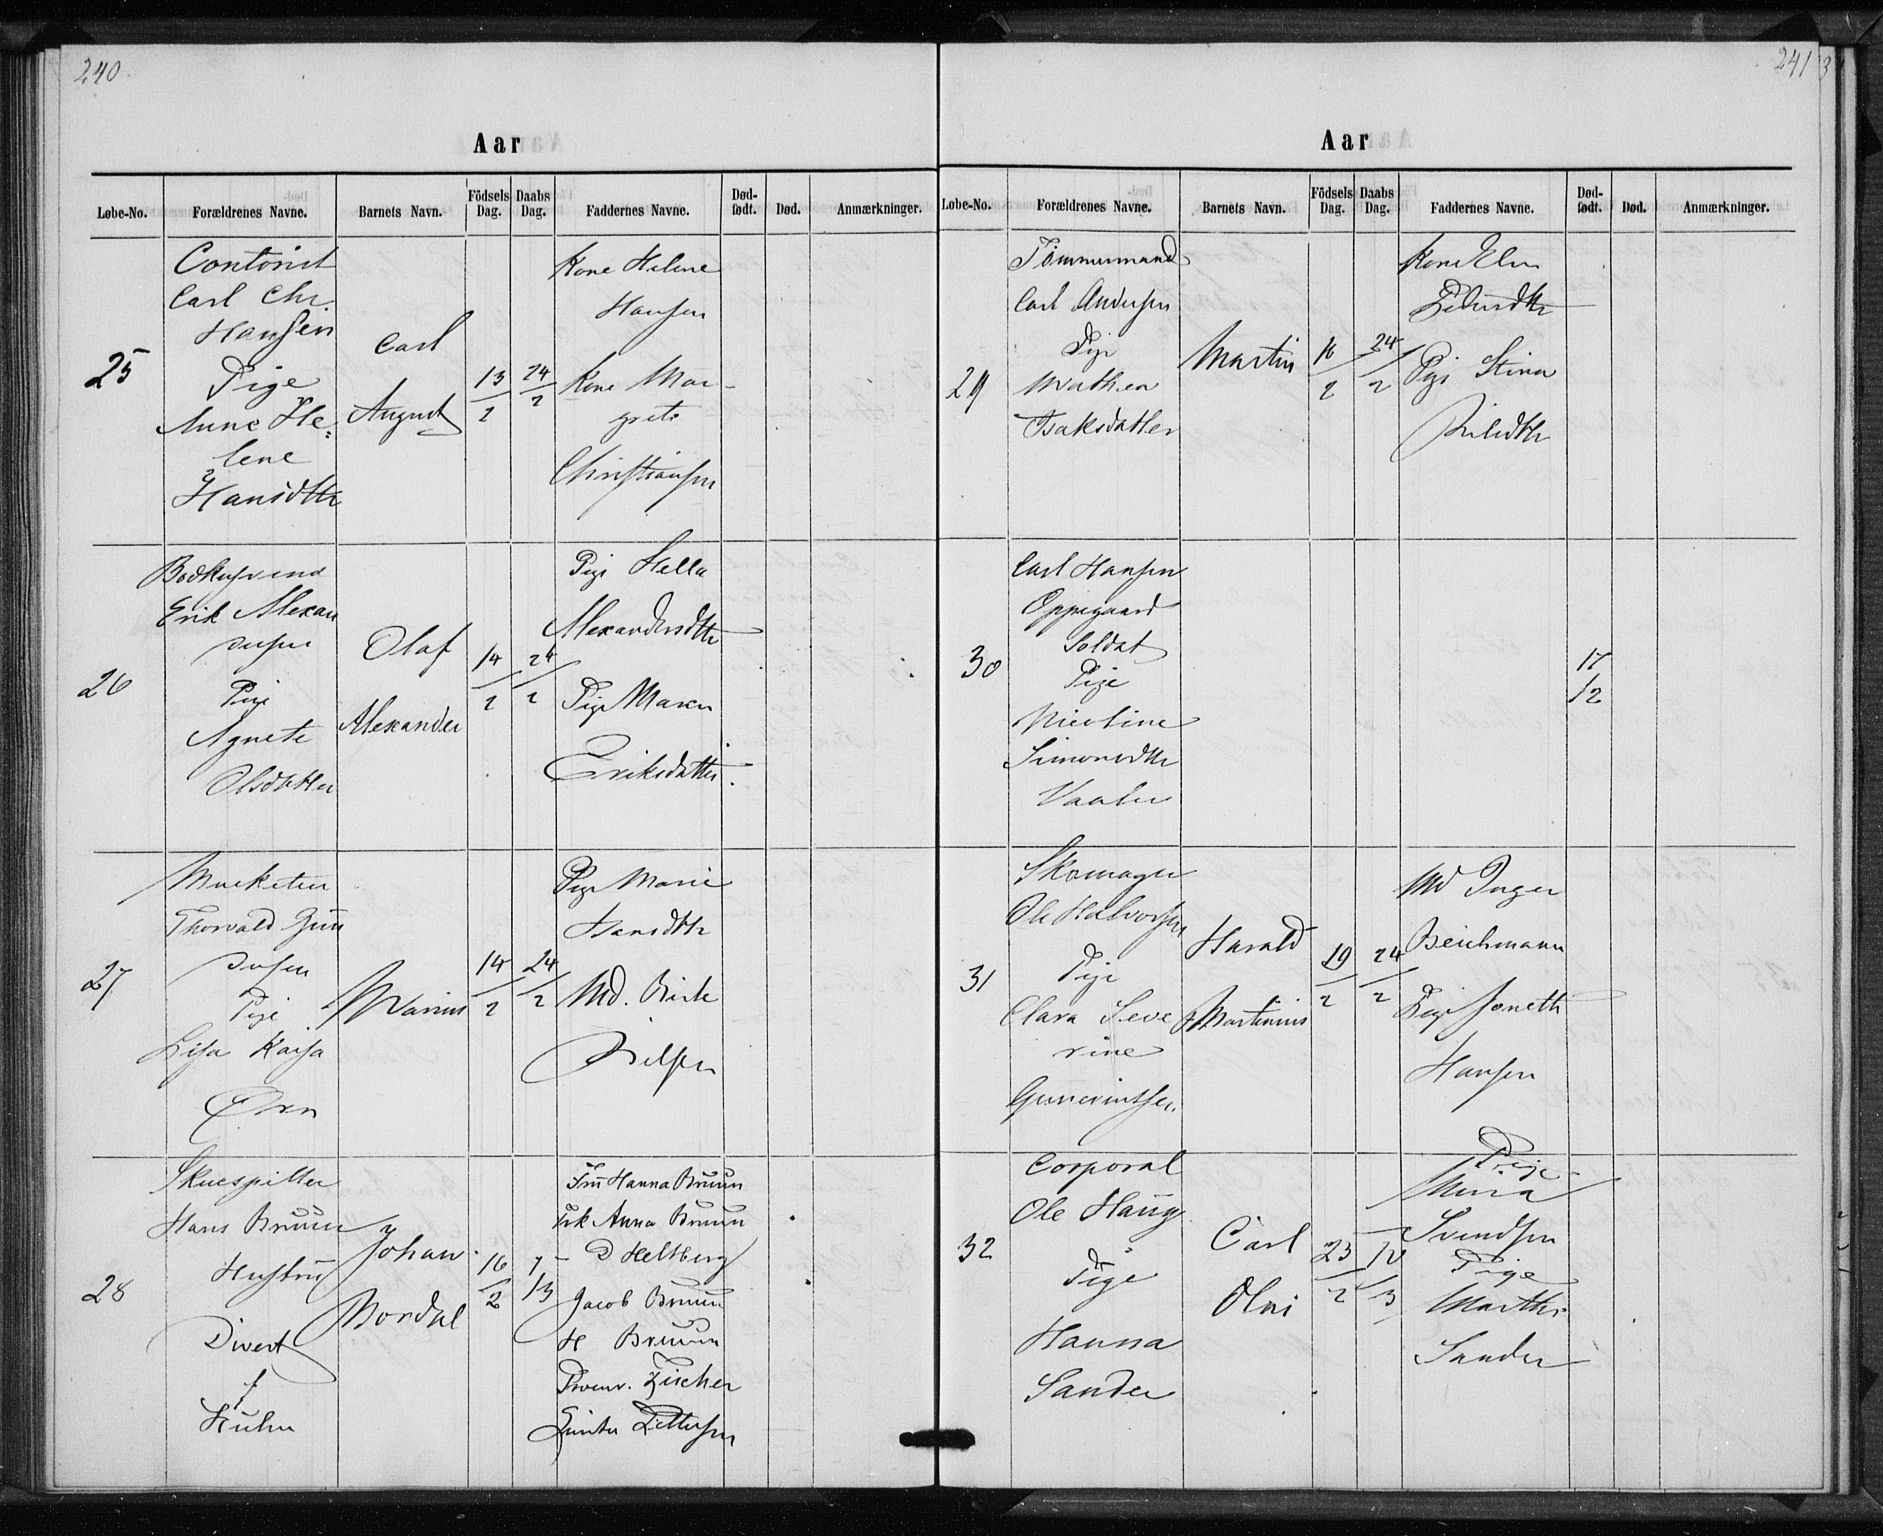 240
Aar
Løbe-No. Forældrenes Navne. Barnets Navn. Födsels Dag. Daabs Dag. Faddernes Navne. Død-født. Død. Anmærkninger.
25
Contorist
Carl Chr.
Hansen
Pige
Anne He-
lene
Hansdttr
Carl
August
13/2
24/2
Kone Helene
Hansen
Kone Mar-
grete
Christiansen
26
Erik Alexan
dersen
Pige
Agnete
Olsdatter
Olaf
Alexander
14/2
24/2
Pige Hella
Alexandersdttr
Pige Maren
Eriksdatter
27
Musketeer
Thorvald Gun
dersen
Pige
Lisa Kaisa
Marius
14/2
24/2
Pige Marie
Hansdttr
Md. Birte
Nilsen
28
Skuespiller
Hans Bruun
Hustru
Divert
f
Kuhn
Johan
Nordal
16/2
1/13
Fru Hanna Bruun
Frk Anna Bruun
D Heltberg
Jacob Bruun
H Bruun
Fischer
Pettersen
241
Aar
Løbe-No. Forældrenes Navne. Barnets Navn. Födsels Dag. Daabs Dag. Faddernes Navne. Død-født. Død. Anmærkninger.
29
Tömmermand
Carl Andersen
Pige
Mathea
Isaksdatter
Martin
16/2
24/2
Kone Elen
Pedersdttr
Pige Stina
Nilsdttr
30
Carl Hansen
Oppegaard
Soldat
Pige
Nicoline
Simonsdttr
Vaaler
17
12
31
Skomager
Ole Halvorsen
Pige
Clara Seve
rine
Harald
Martinius
19/2
24/2
Md Inger
Beichmann
Pige Jonette
Hansen
32
Corporal
Ole Haug
Pige
Hanna
Sander
Carl
Olai
23/2
10/3
Pige
Mina
Svendsen
Pige
Marthe
Sander